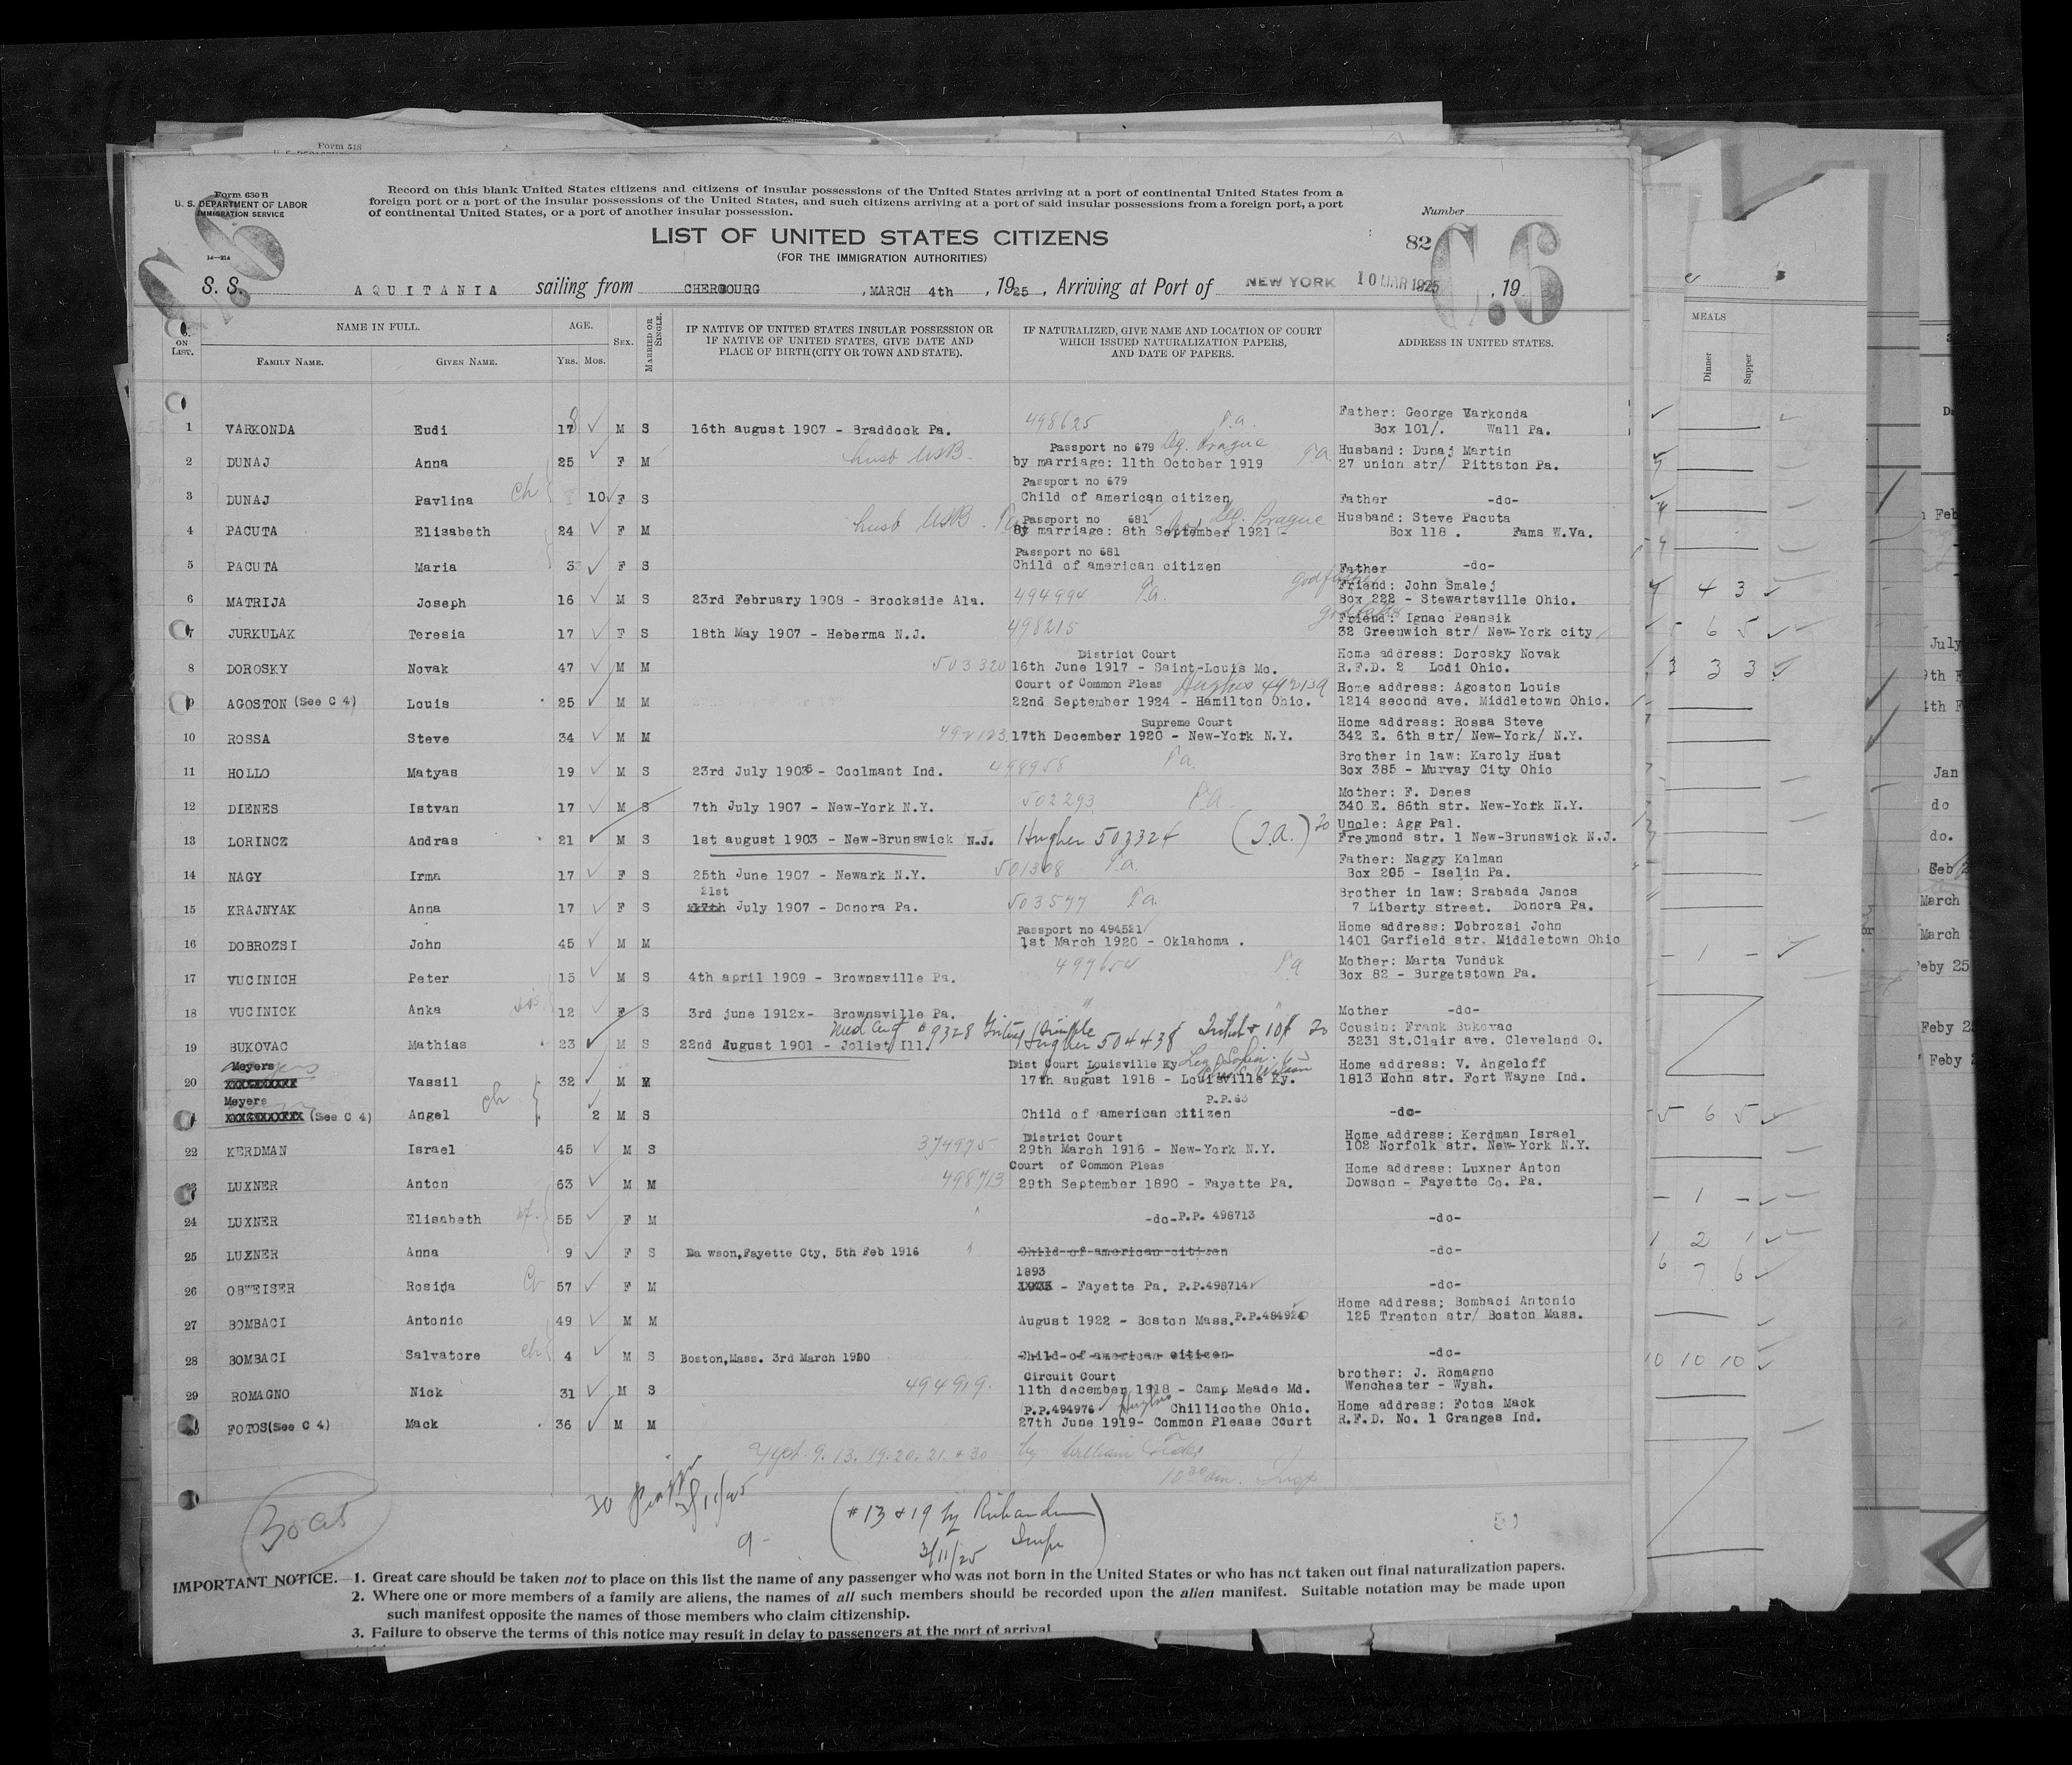 Form 518
Form 630 B
U. S. DEPARTMENT OF LABOR
IMMIGRATION SERVICE
14—214
Record on this blank United States citizens and citizens of insular possessions of the United States arriving at a port of continental United States from a
foreign port or a port of the insular possessions of the United States, and such citizens arriving at a port of said insular possessions from a foreign port, a port
of continental United States, or a port of another insular possession.
Number
LIST OF UNITED STATES CITIZENS
(FOR THE IMMIGRATION AUTHORITIES)
82
C.6
C.6
S. S. AQUITANIA sailing from CHERBOURG, MARCH 4th, 1925, Arriving at Port of NEW YORK 10 MAR 1925, 19
ON LIST. NAME IN FULL. AGE. SEX. MARRIED OR SINGLE. IF NATIVE OF UNITED STATES INSULAR POSSESSION OR IF NATIVE OF UNITED STATES, GIVE DATE AND PLACE OF BIRTH (CITY OR TOWN AND STATE). IF NATURALIZED, GIVE NAME AND LOCATION OF COURT WHICH ISSUED NATURALIZATION PAPERS, AND DATE OF PAPERS. ADDRESS IN UNITED STATES.
FAMILY NAME. GIVEN NAME. YRS. MOS.
MEALS
Dinner Supper
498625 Pa. Father: George Varkonda
1 VARKONDA Eudi 17 M S 16th august 1907 - Braddock Pa. Box 101/. Wall Pa.
husb USB. Passport no 679 Prague Husband: Dunaj Martin
2 DUNAJ Anna 25 F M by marriage: 11th October 1919 Pa 27 union str/ Pittston Pa.
Passport no 679
3 DUNAJ Pavlina ch 10 F S Child of american citizen Father -do-
husb USB. Passport no 681 Prague Husband: Steve Pacuta
4 PACUTA Elisabeth 24 F M By marriage: 8th September 1921 - Box 118 . Fams W.Va.
Passport no 681
5 PACUTA Maria 3 F S Child of american citizen Father -do-
godfather Friend: John Smalej
6 MATRIJA Joseph 16 M S 23rd February 1908 - Brookside Ala. 494994 Pa. Box 222 - Stewartsville Ohio.
godfather Friend: Ignac Peansik
7 JURKULAK Teresia 17 F S 18th May 1907 - Heberma N.J. 498215 32 Greenwich str/ New-York city
District Court Home address: Dorosky Novak
8 DOROSKY Novak 47 M M 503320 16th June 1917 - Saint-Louis Mo. R.F.D. 2 Lodi Ohio.
Court of Common Pleas Hughes Home address: Agoston Louis
9 AGOSTON (See C 4) Louis 25 M M 22nd September 1924 - Hamilton Ohio. 1214 second ave. Middletown Ohio.
Supreme Court Home address: Rossa Steve
10 ROSSA Steve 34 M M 17th December 1920 - New-York N.Y. 342 E. 6th str/ New-York/ N.Y.
Brother in law: Karoly Huat
11 HOLLO Matyas 19 M S 23rd July 1905 - Coolmant Ind. 498958 Pa. Box 385 - Murvay City Ohio
Mother: F. Denes
12 DIENES Istvan 17 M S 7th July 1907 - New-York N.Y. 502293 Pa. 340 E. 86th str. New-York N.Y.
Uncle: Agg Pal.
13 LORINCZ Andras 21 M S 1st august 1903 - New-Brunswick N.J. Hughes 503324 Freymond str. 1 New-Brunswick N.J.
Father: Naggy Kalman
14 NAGY Irma 17 F S 25th June 1907 - Newark N.Y. 501308 Pa. Box 205 - Iselin Pa.
21st Brother in law: Srabada Janos
15 KRAJNYAK Anna 17 F S 17th July 1907 - Donora Pa. 503577 Pa. 7 Liberty street. Donora Pa.
Passport no 494521 Home address: Dobrozsi John
16 DOBROZSI John 45 M M 1st March 1920 - Oklahoma . 1401 Garfield str. Middletown Ohio
497654 Pa Mother: Marta Vunduk
17 VUCINICH Peter 15 M S 4th april 1909 - Brownsville Pa. Box 82 - Burgetstown Pa.
18 VUCINICK Anka sis 12 F S 3rd june 1912x- Brownsville Pa. Mother -do-
#9328 504438 Cousin: Frank Bukovac
19 BUKOVAC Mathias 23 M S 22nd August 1901 - Joliet Ill. 3231 St.Clair ave. Cleveland O.
Meyers Dist Court Louisville Ky Home address: V. Angeloff
20 Vassil 32 M M 17th august 1918 - Louisville Ky. 1813 Hohn str. Fort Wayne Ind.
Meyers P.P.63
(See C 4) Angel ch 2 M S Child of american citizen -do-
District Court Home address: Kerdman Israel
22 KERDMAN Israel 45 M S 374975 29th March 1916 - New-York N.Y. 102 Norfolk str. New-York N.Y.
Court of Common Pleas Home address: Luxner Anton
23 LUXNER Anton 63 M M 498713 29th September 1890 - Fayette Pa. Dowson - Fayette Co. Pa.
24 LUXNER Elisabeth wf. 55 F M -do- P.P. 498713 -do-
25 LUXNER Anna 9 F S Da wson,Fayette Cty, 5th Feb 1916 Child of american citizen -do-
1893
26 OBWEISER Rosida 57 F M - Fayette Pa. P.P.498714 -do-
Home address; Bombaci Antonio
27 BOMBACI Antonio 49 M M August 1922 - Boston Mass. P.P.484920 125 Trenton str/ Boston Mass.
28 BOMBACI Salvatore ch 4 M S Boston,Mass. 3rd March 1920 Child of american citizen -do-
Circuit Court brother: J. Romagno
29 ROMAGNO Nick 31 M S 494919. 11th december 1918 - Camp Meade Md. Wenchester - Wysh.
P.P.494976 Hughes Chillicothe Ohio. Home address: Fotos Mack
FOTOS(See C 4) Mack 36 M M 27th June 1919- Common Please Court R.F.D. No. 1 Granges Ind.
9. 13. 19. 20. 21. + 30 by William
10 30 am. Insp
30 3/11/25
(#13 + 19 by
3/11/25 Insp)
9-
IMPORTANT NOTICE.—1. Great care should be taken not to place on this list the name of any passenger who was not born in the United States or who has not taken out final naturalization papers.
2. Where one or more members of a family are aliens, the names of all such members should be recorded upon the alien manifest. Suitable notation may be made upon
such manifest opposite the names of those members who claim citizenship.
3. Failure to observe the terms of this notice may result in delay to passengers at the port of arrival
4 3
6 5
3 3 3
1
5 6 5
1
1 2 1
6 7 6
10 10 10
Feb
July
Jan
do
do.
March
March
Feby 25
Feby 2
Feby